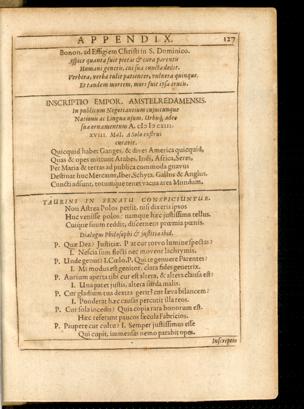 APPENDIX. 127
Bonon. ad Effigiem Christi in S. Dominico.
Aspice quanta fuit pietas & cura parentis
Humani generis, cui sua cuncta dedit.
Verbera, verba tulit patienter, vulnera quinque,
Et tandem mortem, mors fuit ipsa crucis.
INSCRIPTIO EMPOR. AMSTELREDAMENSIS.
In publicum Negotiantium cujuscunque
Nationis ac Linguæ usum, Urbisq, adeo
suæ ornamentum A.
XVIII. Mai. à Solo extrui
curavit.
Quicquid habet Ganges, & dives America quicquid,
Quas & opes mittunt Arabes, Indi, Africa, Seres,
Per Maria & terras ad publica commoda gnavus
Destinat huc Mercator, Iber, Scytha, Gallus & Anglus.
Cuncta adsunt, totumque tenet vacua area Mundum.
TAURINI IN SENATU CONSPICIUNTUR.
Non Astrea Polos petiit, nisi dixeris ipsos
Huc venisse polos: namque hæc justissima tellus.
Cuique suum reddit, discernens præmia pœnis.
Dialogus Philosophi & justitiæ ibid.
P. Quæ Dea? Justitiæ. P. at cur torvo lumine spectas?
I. Nescia sum flecti nec movere lachrymis.
P. Unde genus? I. Cœlo. P. Qui te genuere Parentes?
I. Mi modus est genitor, clara fides genetrix.
P. Aurium aperta tibi cur est altera, & altera clausa est?
I. Una patet justis, altera surda malis.
P. Cur gladium tua dextra gerit? cur læva bilancem?
I. Ponderat hæc causas percutit illa reos.
P. Cur sola incedis? Quia copia rara bonorum est.
Hæc referunt paucos secula Fabricios.
P. Paupere cur cultu? I. Semper justissimus esse
Qui cupit, immensas nemo parabit opes.
Inscriptio